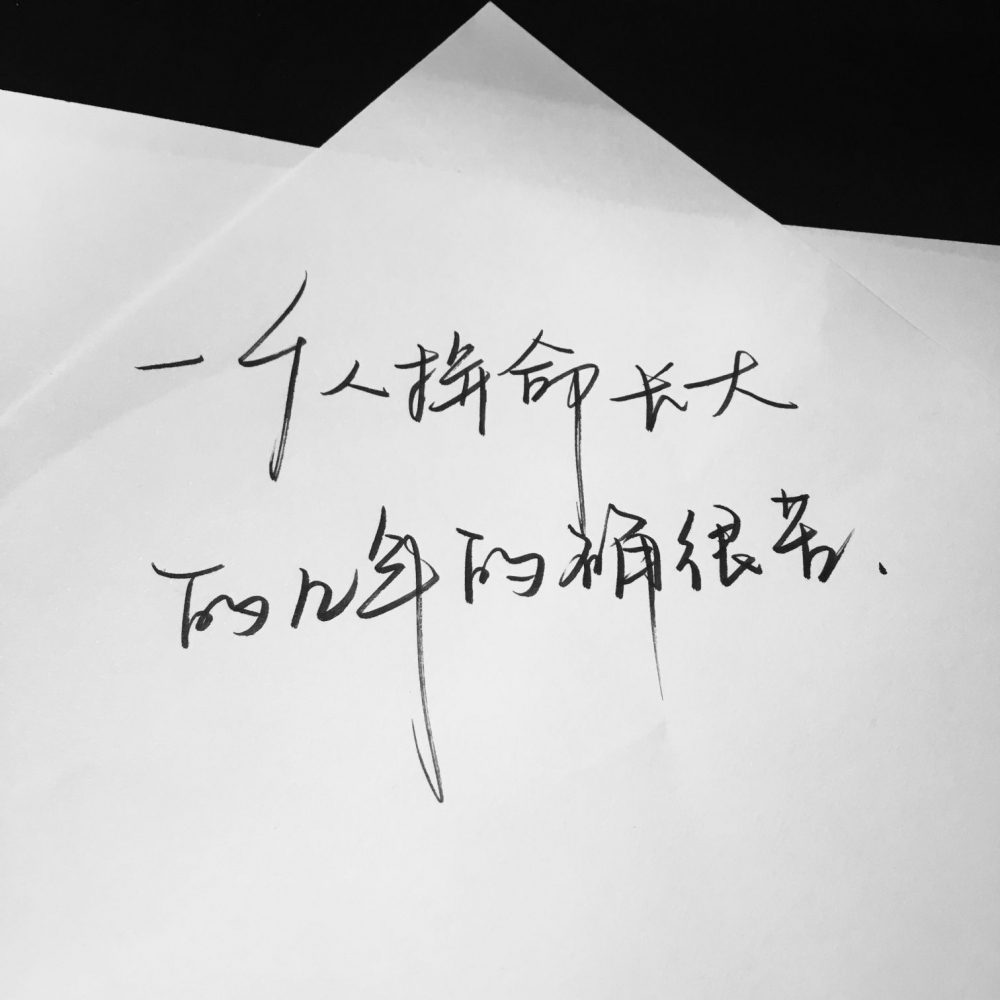 一个人拼命长大
的几年的确很苦.